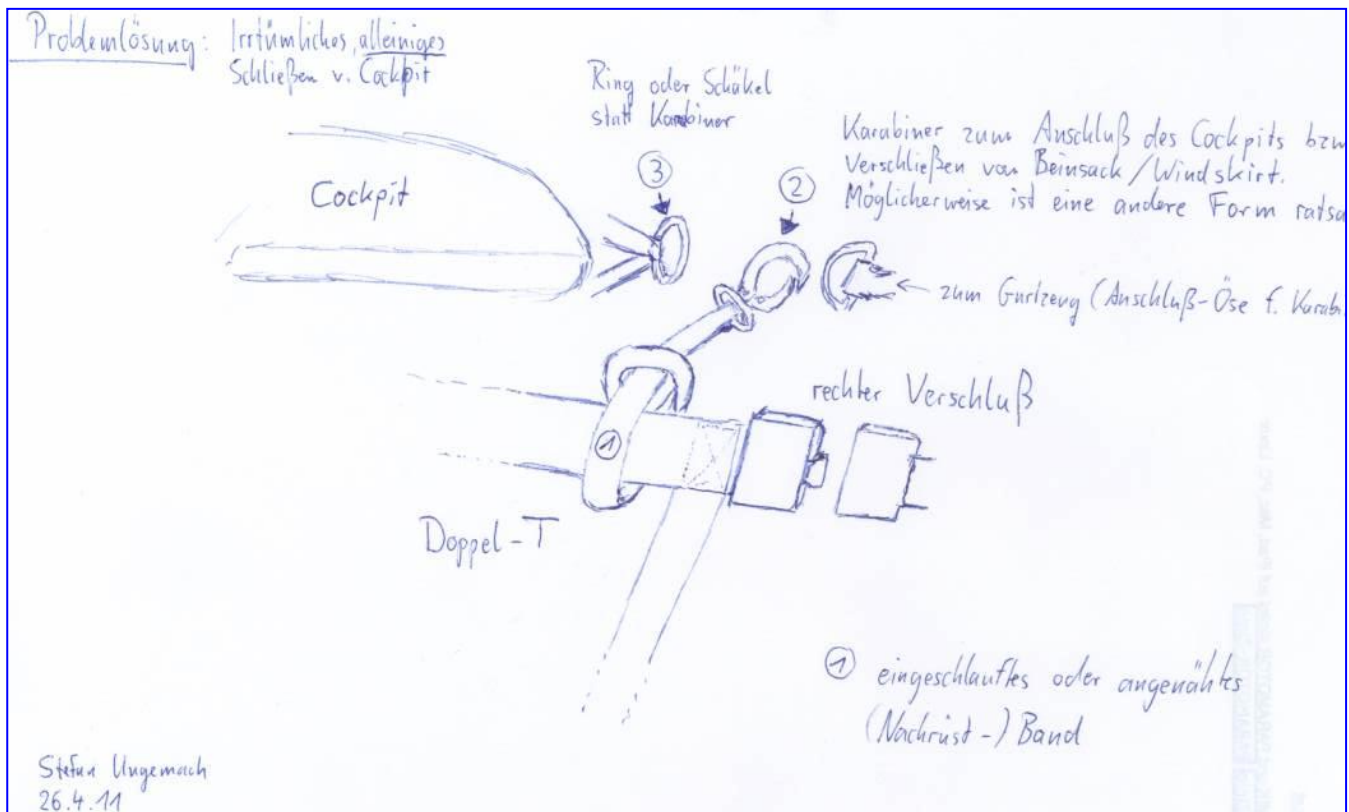 Problemlösung: Irrtümliches, alleiniges
Schließen v. Cockpit
Ring oder Schäkel
statt Karabiner
Karabiner zum Anschluß des Cockpits bzw
Verschließen von Beinsack/Windskirt.
Möglicherweise ist eine andere Form ratsa
Cockpit
③
②
zum Gurtzeug (Anschluß-Öse f. Karabi
rechter Verschluß
①
Doppel-T
① eingeschlauftes oder angenähtes
(Nachrüst-) Band
Stefan Ungemach
26.4.11